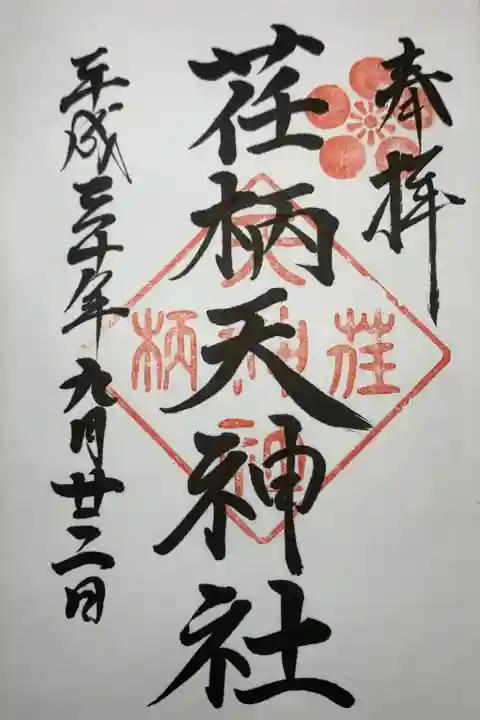 奉拝
荏柄天神社
平成三十年九月廿二日
荏
天神社
柄